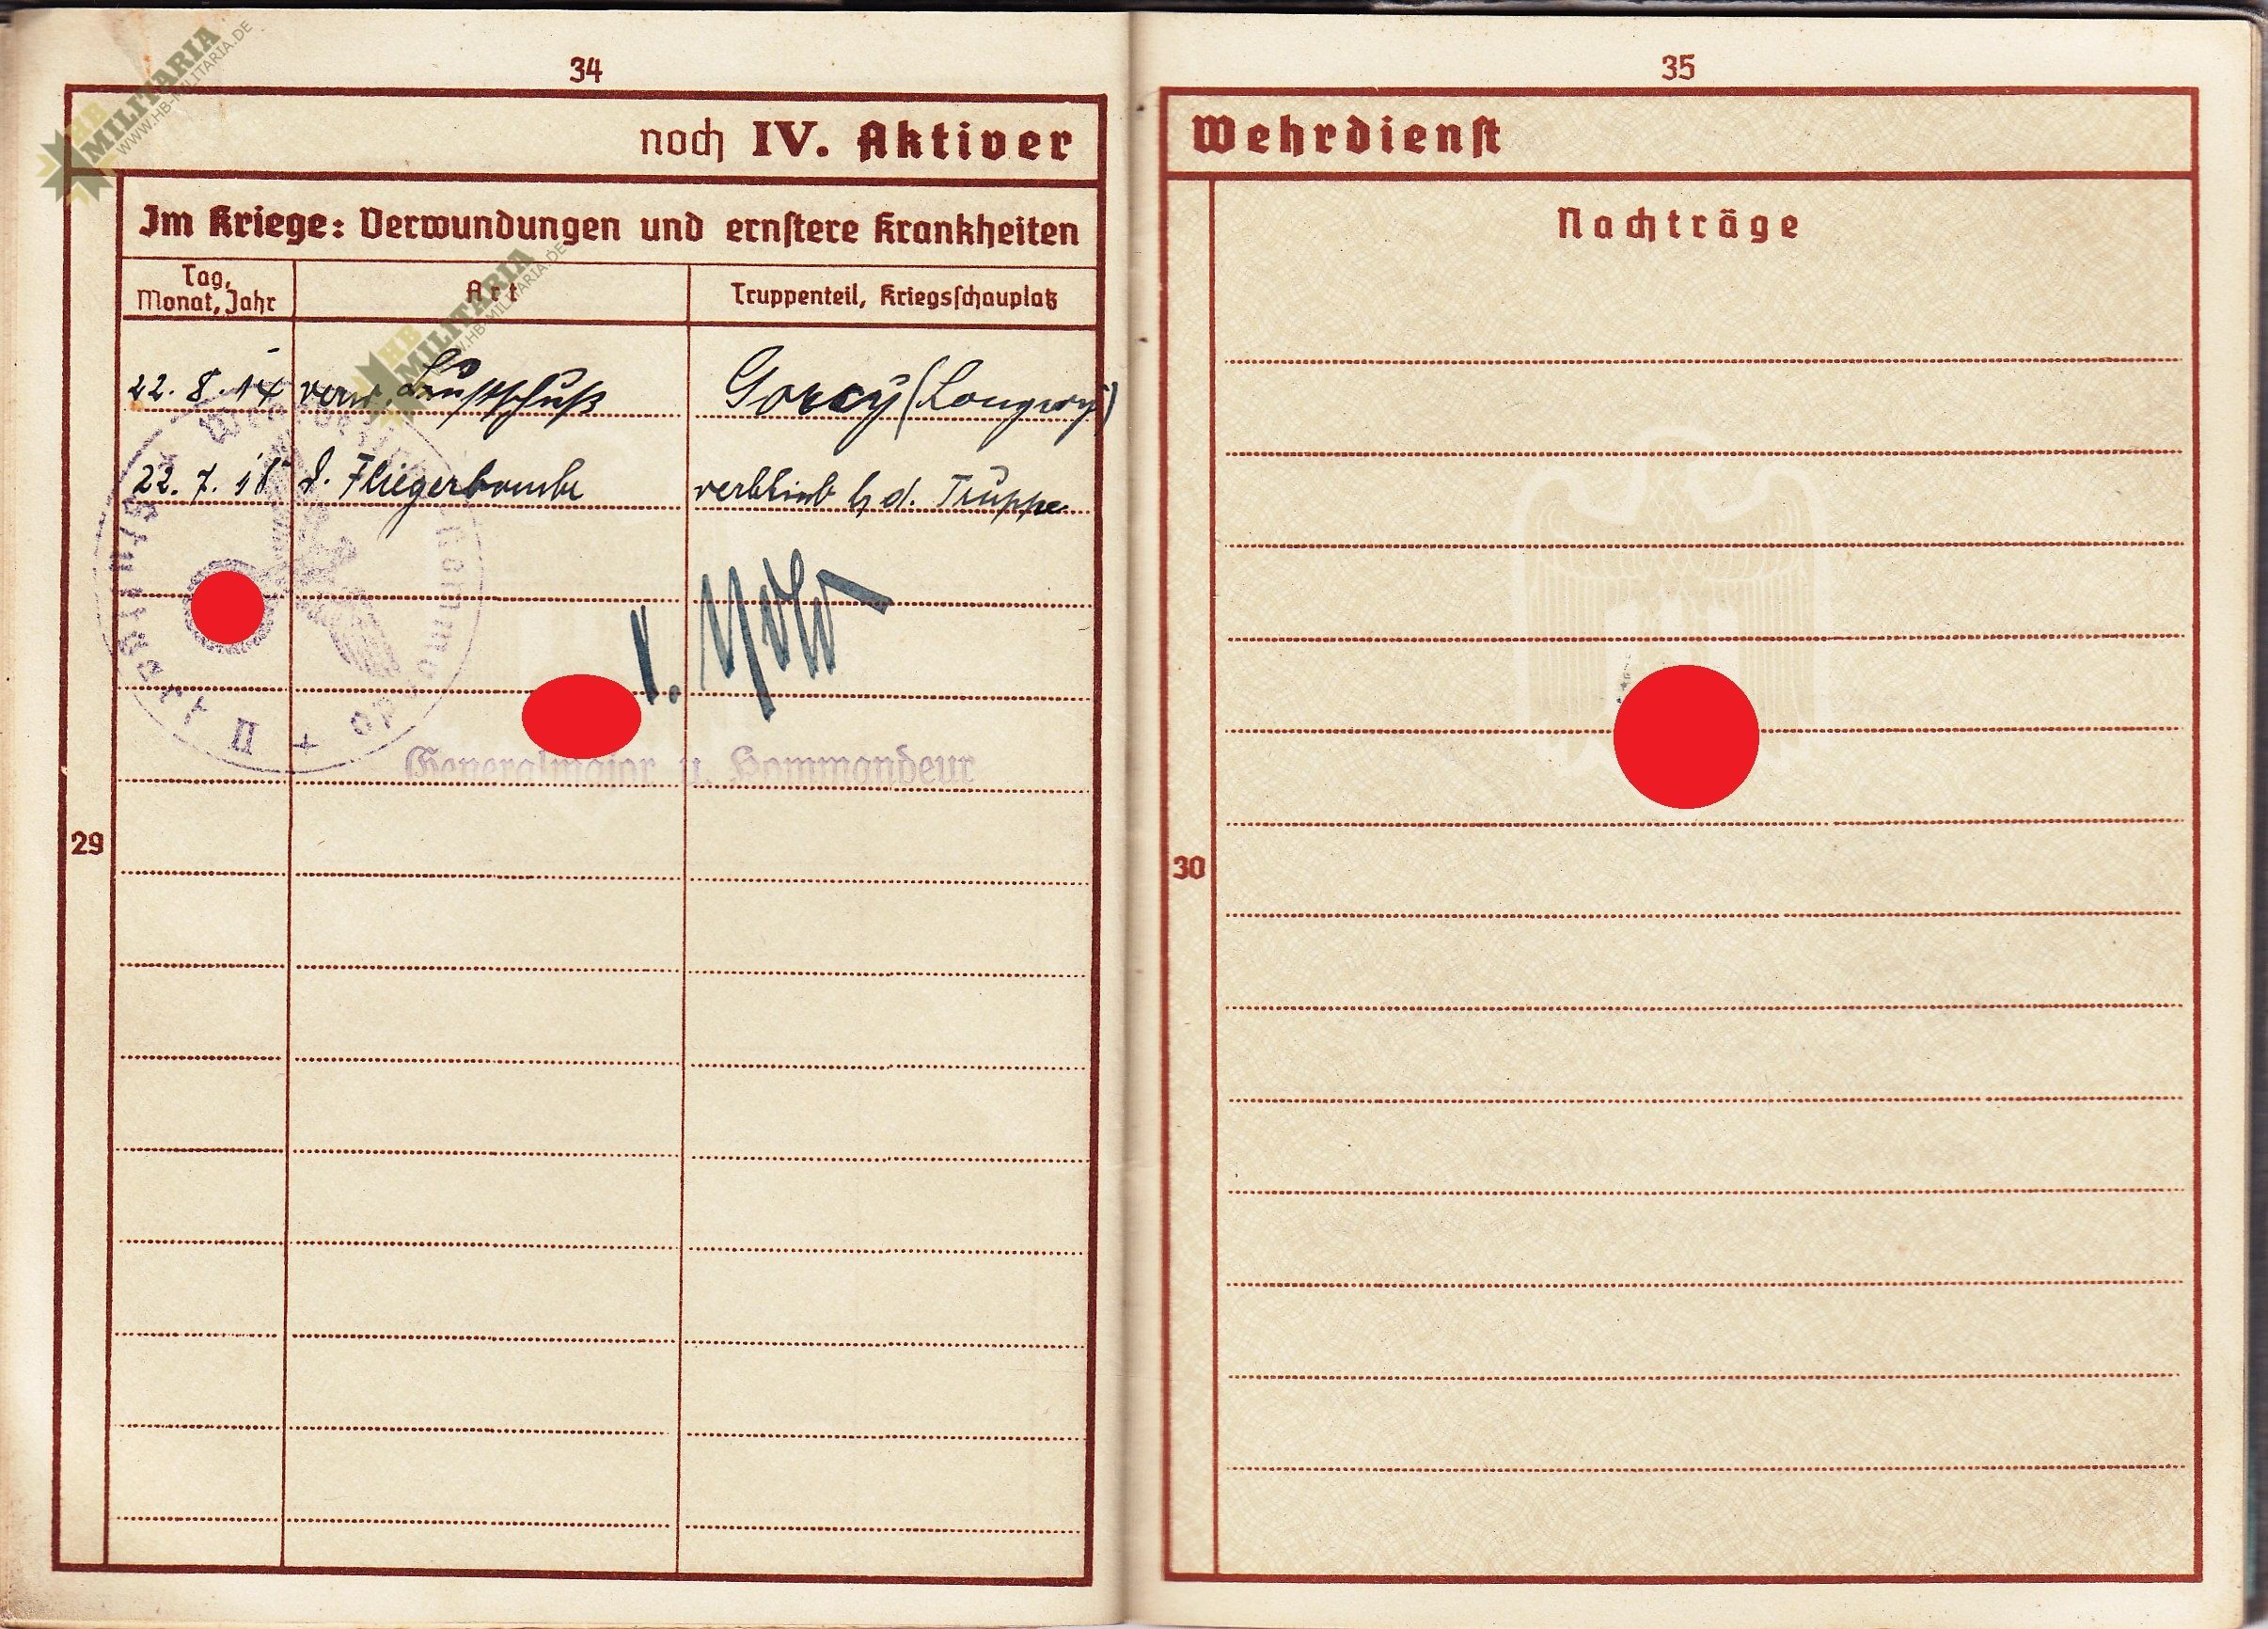 HB MILITARIA
WWW.HB-MILITARIA.DE
34
noch IV. Aktiver
Im Kriege: Verwundungen und ernstere Krankheiten
Tag, Monat, Jahr
Art
Truppenteil, Kriegsschauplatz
HB MILITARIA
WWW.HB-MILITARIA.DE
22. 8. 14 verw. Brustschuß Gorcy (Longwy)
22. 7. 18 d. Fliegerbombe verblieb b. d. Truppe
Generalmajor u. Kommandeur
29
35
Wehrdienst
Nachträge
30